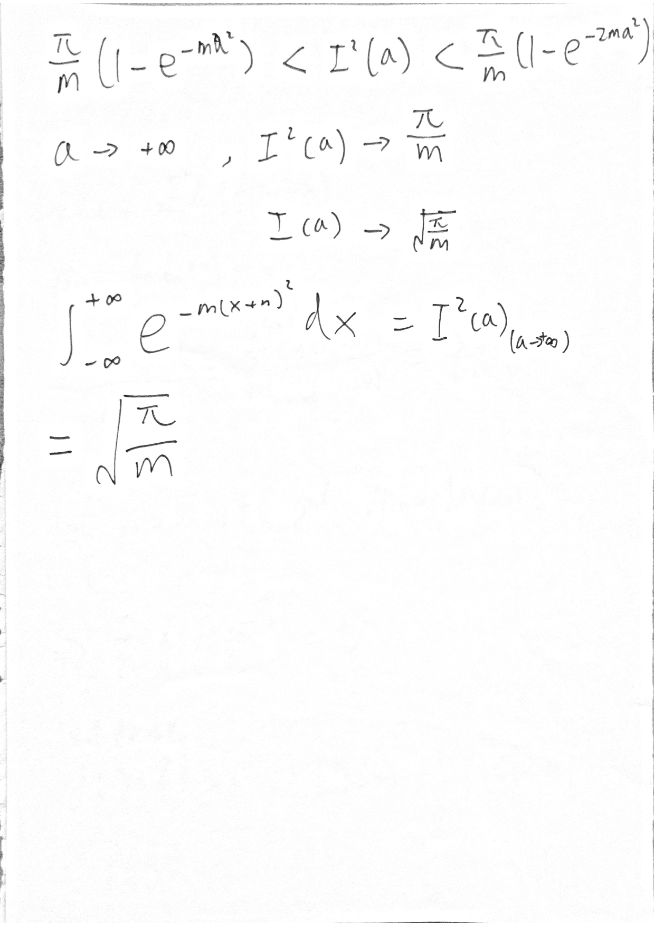 π/m (1-e^{-ma²}) < I²(a) < π/m (1-e^{-2ma²})
a → +∞ , I²(a) → π/m
I(a) → √(π/m)
∫_{-∞}^{+∞} e^{-m(x+n)²} dx = I²(a)_{(a→+∞)}
= √(π/m)